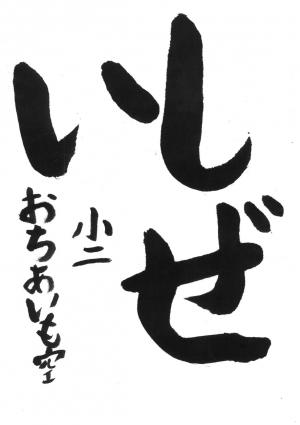 しぜ
い
小二
おちあいも空